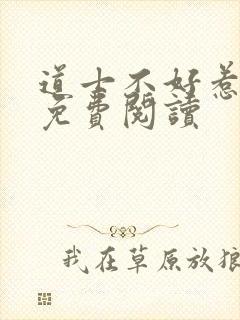 道士不好惹
免費閱讀
我在草原放狼